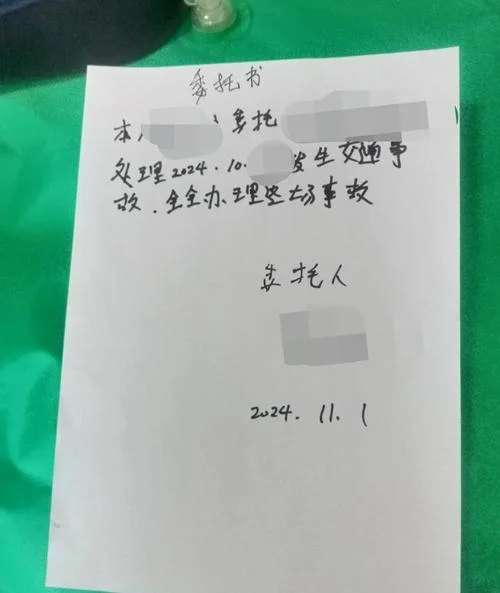 委托书
本人 委托
处理2024.10. 发生交通事
故.全全办理这场事故
委托人
2024.11.1